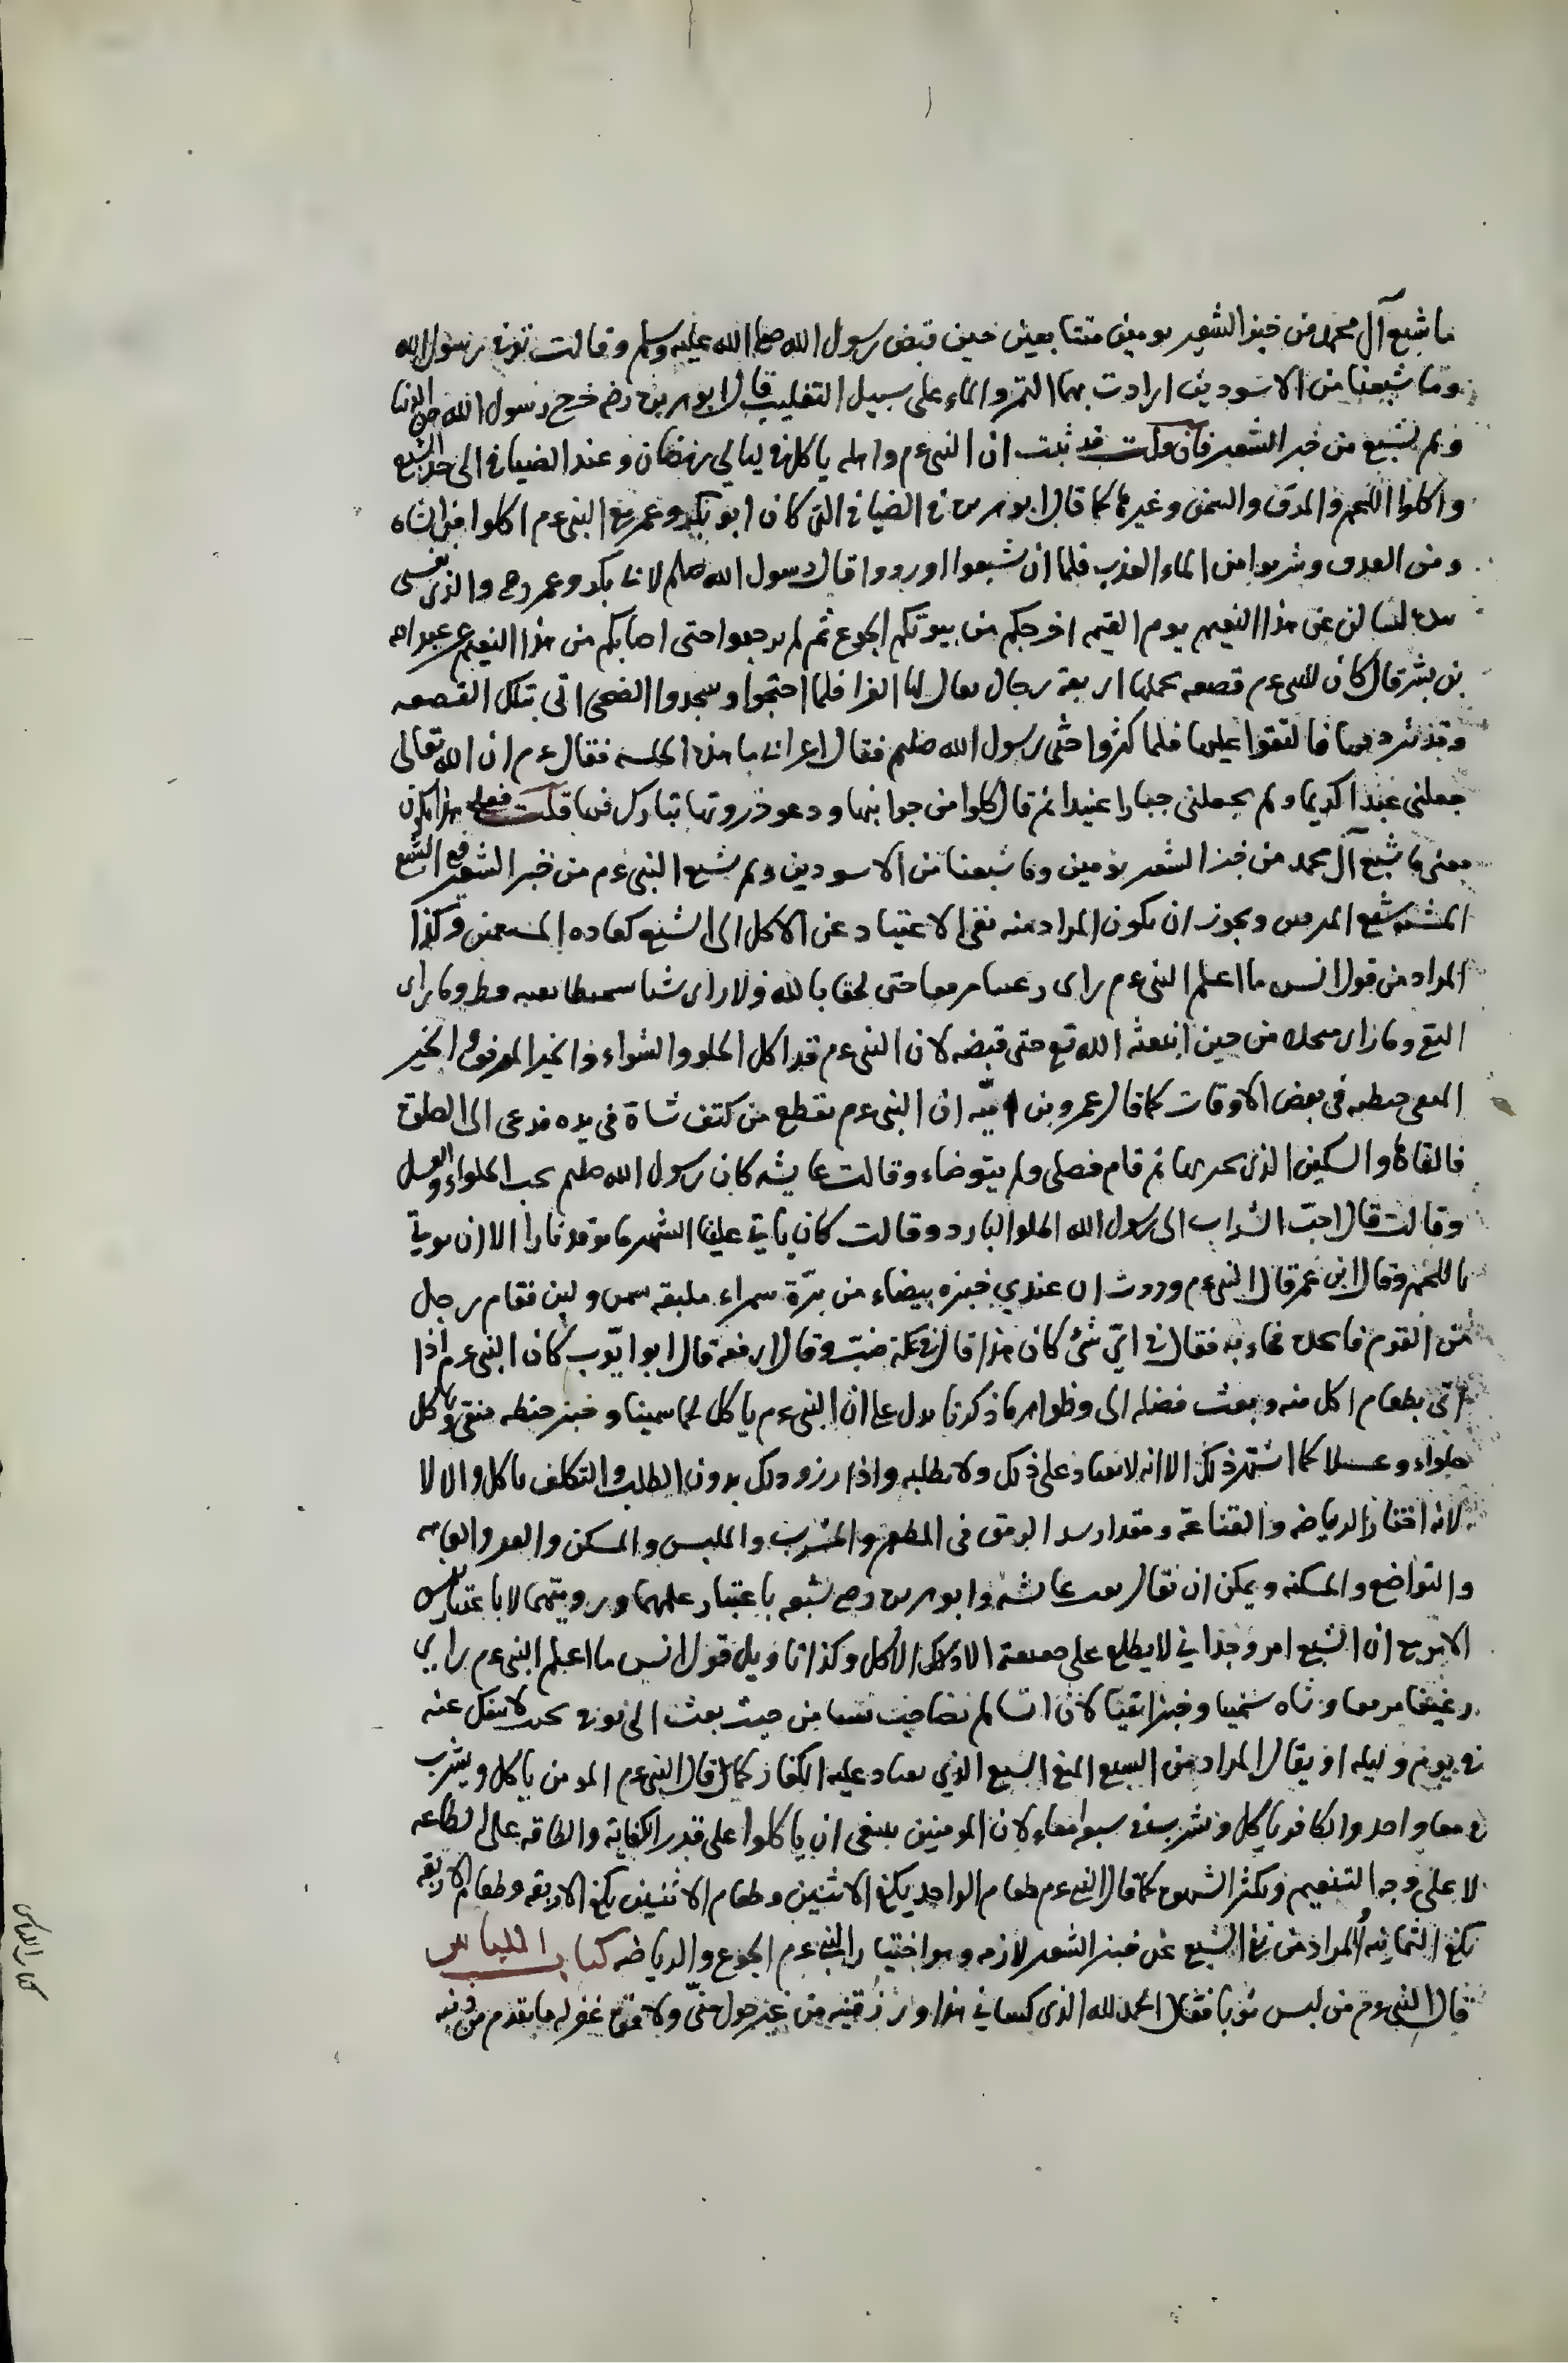 ما شبع آل محمد من خبز الشعير يومين متتابعين حين قبض رسول الله صلى الله عليه وسلم وقالت توفى رسول الله
وما شبعنا من الاسودين ارادت بهما التمر والماء على سبيل التغليب قال ابو هريرة رضه خرج رسول الله من الدنيا
ولم يشبع من خبز الشعير فان قلت قد ثبت ان النبى ءم واهله ياكل فى ليالي رمضان وعند الضيافة الى حد الشبع
واكلوا اللحم والمرق والسمن وغيرها كما قال ابو هريرة فى الضيافة التى كان ابو بكر وعمر مع النبى ءم اكلوا من الشاة
ومن العذق وشربوا من الماء العذب فلما ان شبعوا ورووا قال رسول الله صلعم لابى بكر وعمر رضى والذى نفسى
بيده لتسالن عن هذا النعيم يوم القيمة اخرجكم من بيوتكم الجوع ثم لم ترجعوا حتى اصابكم من هذا النعيم عن عبد الله
بن بشر قال كان للنبى ءم قصعه يحملها اربعة رجال يقال لها الغرا فلما اضحوا وسجدوا الضحى اتى بتلك القصعه
وقد ثرد فيها فالتقوا عليها فلما كثروا جثى رسول الله صلعم فقال اعرابى ما هذه الجلسه فقال ءم ان الله تعالى
جعلنى عبدا كريما ولم يجعلنى جبارا عنيدا ثم قال كلوا من جوانبها ودعو ذروتها تبارك فيها قلت فعلى هذا يكون
معنى ما شبع آل محمد من خبز الشعير يومين وما شبعنا من الاسودين ولم يشبع النبى ءم من خبز الشعير الشبع
ويجوز ان يكون المراد منه نفى الاعتياد عن الاكل الى الشبع كعاده المتنعمين وكذا
المراد من قول انس ما اعلم النبى ءم راى رغيفا مرققا حتى لحق بالله ولا راى شاة سميطا بعينه قط وما راى
النقى وما راى منخلا من حين ابتعثه الله تع حتى قبضه لان النبى ءم قد اكل الحلو والشواء والخبز المرقوق الخبز
النقى حنطه فى بعض الاوقات كما قال عمرو بن اميّه ان النبى ءم يقطع من كتف شاة فى يده فدعى الى الصلوة
فالقاها والسكين الذى يحز بها ثم قام فصلى ولم يتوضاء وقالت عايشه كان رسول الله صلعم يحب الحلواء والعسل
وقالت قال احبّ الشراب الى رسول الله الحلو البارد وقالت كان ياتي علينا الشهر ما نوقد نارا الا ان نوتي
باللحم وقال ابن عمر قال النبى ءم وددت ان عندي خبزه بيضاء من برّة سمراء ملبقه بسمن ولبن فقام رجل
من القوم فاتخذه فجاء به فقال فى ايّ شئ كان هذا قال فى عكة ضبّ قال ارفعه قال ابو ايّوب كان النبى ءم اذا
اتى بطعام اكل منه وبعث فضله الى وظواهر ما ذكرنا يدل على ان النبى ءم ياكل لحما سمينا وخبز حنطه منقى وياكل
حلواء وعسلا كما اشتهر ذلك الا انه لا يعتاد على ذلك ولا يطلبه واذا رزق ذلك بدون الطلب والتكلف ياكل والا لا
لانه اختار الرياضه والقناعة ومقدار سد الرمق فى المطعم والمشرب والملبس والمسكن والفقر والفاقه
والتواضع والمسكنه ويمكن ان يقال عايشه وابو هريرة رضى شبعه باعتبار علمهما ورويتهما لا باعتبار نفس
الامر ان الشبع امر وجدانى لا يطلع على حقيقته الا الاكل وكذا تاويل قول انس ما اعلم النبى ءم راى
رغيفا مرققا وشاه سميطا وخبزا نقيا لان انسا لم يصاحب من حيث بعث الى توفى بحيث لا ينفك عنه
فى يوم وليله او يقال المراد من الشبع المنفى الشبع الذي يعتاد عليه الكفار كما قال النبى ءم المومن ياكل ويشرب
فى معا واحد والكافر ياكل ويشرب فى سبعه امعاء لان المومنين ينبغى ان ياكلوا على قدر الكفاية والطاقه على الطاعه
لا على وجه التنعيم وتكثر الشهوة كما قال النبى ءم طعام الواحد يكفى الاثنين وطعام الاثنين يكفى الاربعه وطعام الاربعه
يكفى الثمانيه او المراد من نفى الشبع عن خبز الشعير لازمه وهو اختيار النبى ءم الجوع والرياضه كتاب اللباس
قال النبى ءم من لبس ثوبا فقال الحمد لله الذى كسانى هذا ورزقنيه من غير حول منّي ولا قوة غفر له ما تقدم من ذنبه
كتاب اللباس